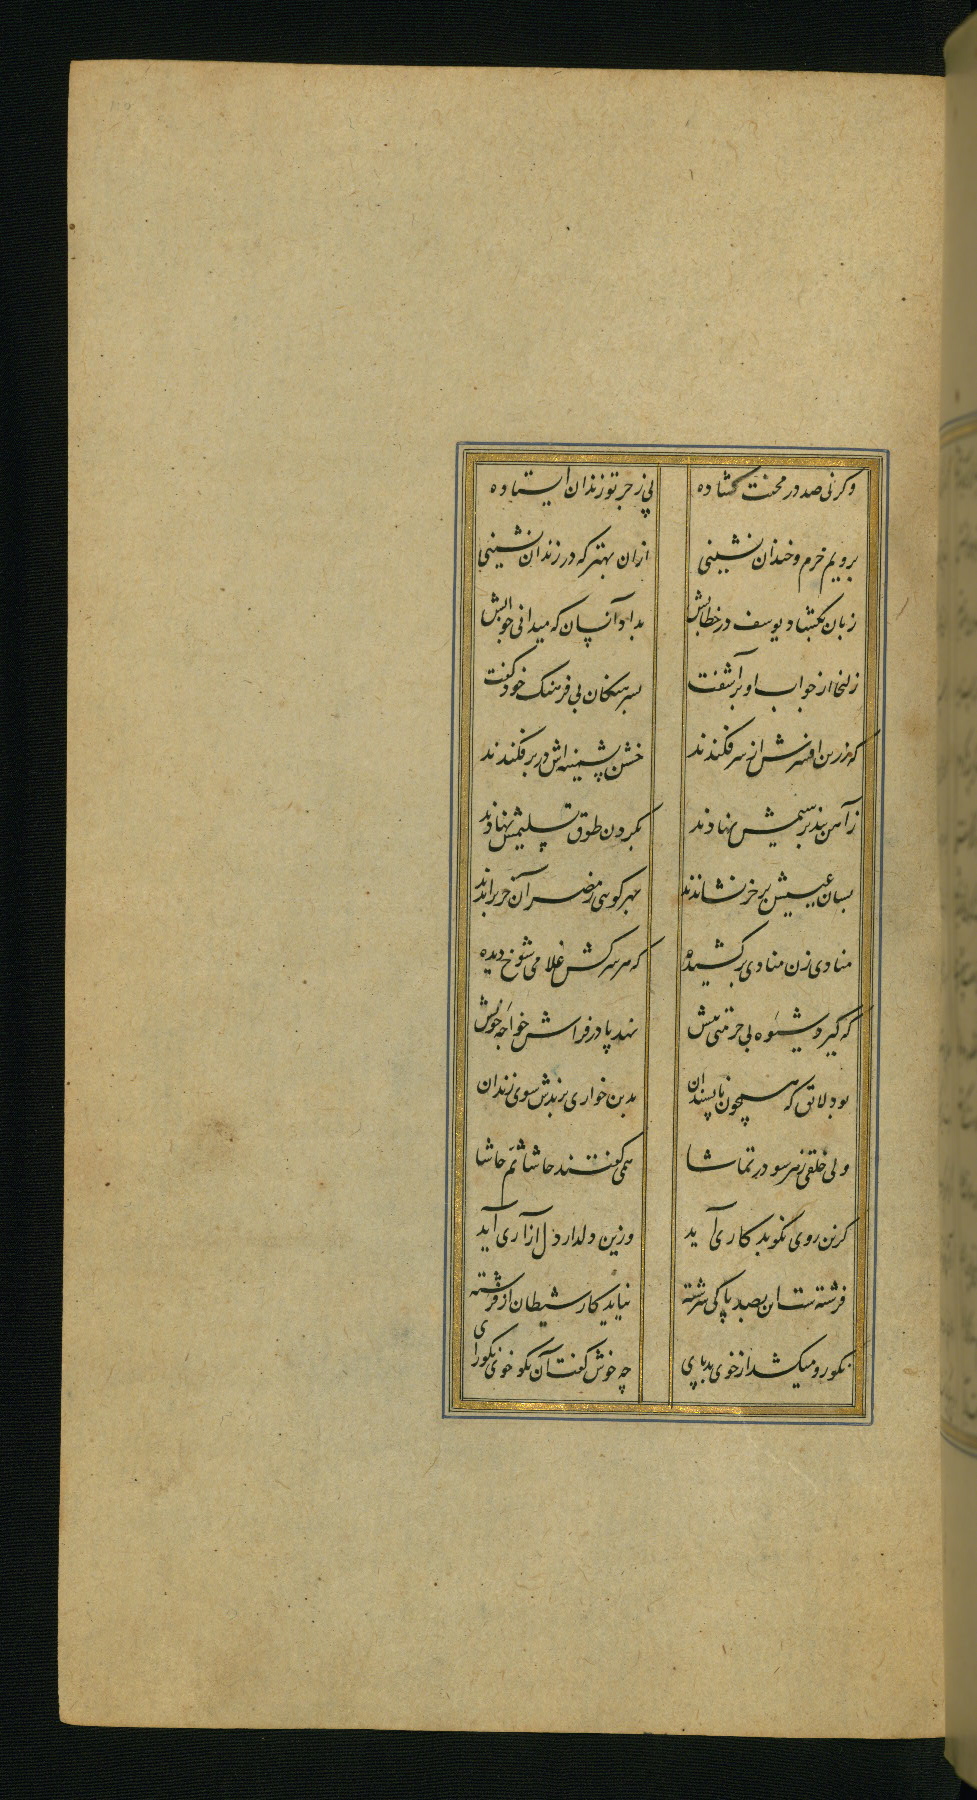 وکرنی صد در محنت کشاده پی زجر تو زندان ایستاده
برویم خرم و خندان نشینی ازان بهتر که در زندان نشینی
زبان بکشاد یوسف در خطابش بداد آنچان که میدانی جوابش
زلیخا از جواب او برآشفت بسرهنکان بی فرهنک خود کفت
که زرین افسرش از سر فکندند خشن پشمینه اش در بر فکندند
زآهن بند بر سیمش نهادند بکردن طوق تسلیمش نهادند
بسان عیسیش بر خر نشاندند بهر کوئی ز مصر آن خر براندند
منادی زن منادی برکشیده که هر سرکش غلامی شوخ دیده
که کیرد شیوه بی حرمتی پیش نهد پا در فراش خواجه خویش
بود لایق که همچون ناپسندان بدین خواری برندش سوی زندان
ولی خلقی زهر سو در تماشا همی کفتند حاشا ثم حاشا
کزین روی نکو بدکاری آید وزین دلدار دل ازآری آید
فرشته ست این بصد پاکی سرشته نیاید کار شیطان از فرشته
نکورو میکشد از خوی بد پای چه خوش کفت آن نکو خوی نکو رای